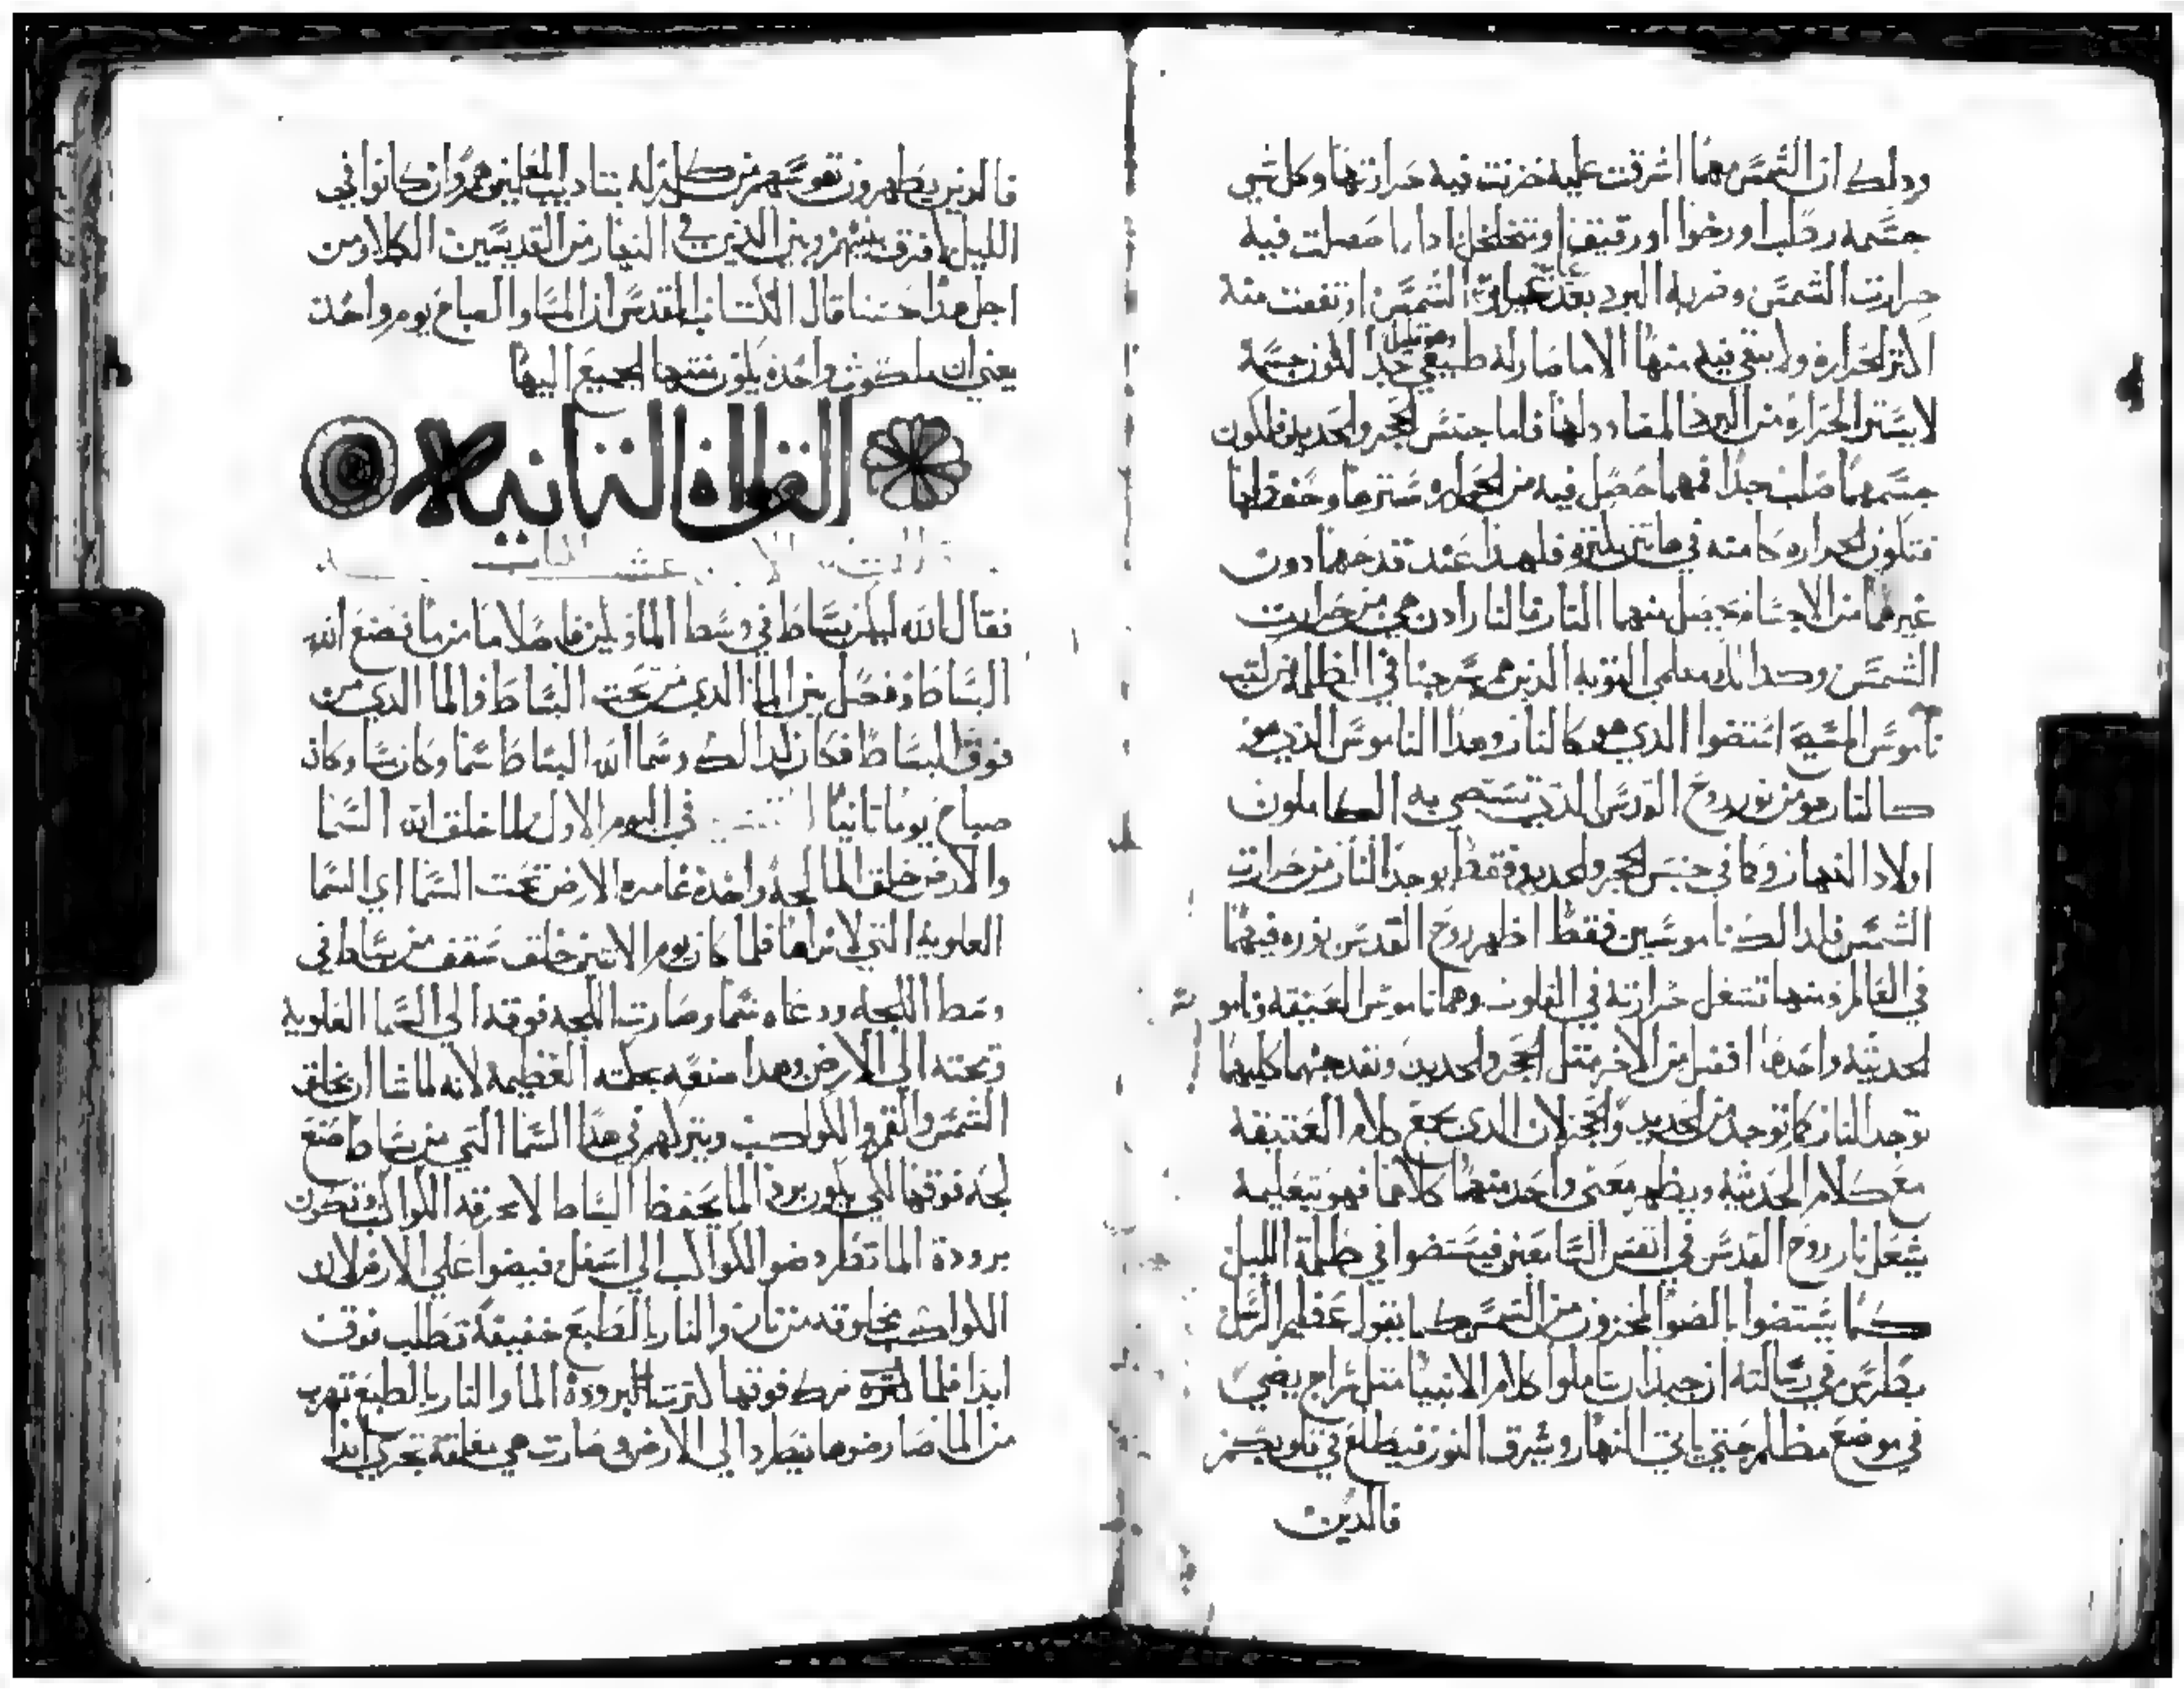 ودلك ان الشمس مهما اشرقت عليه خزنت فيه حرارتها وكل شي
جسمه رطب او رخوا او رقيق او متخلخل ادا ما حصلت فيه
حرارت الشمس وضربه البرد بعد غياب الشمس ارتفعت منه
اكثر الحراره ولا يبقي فيه منها الا ما صار له طبيعي جدا لكون جسمه
لا يستر الحراره من البرد المضادد لها فاما جنس الحجر والحديد فلكون
جسمهما صلب جدا فمهما حصل فيه من الحراره سترها وحفظها
فتكون الحراره كامنه في فلهدا عند قدحهما دون
غيرهما من الاجسام يحصل منهما النار فالنار ادن هي من حرارت
الشمس وهدا معلمي التوبه الدين هم سرجنا في الظلمه من كتب
ناموس المسيح استضوا الدي هو كالنار وهدا الناموس الدي هو
كالنار هو من نور روح القدس الدي تستضي به الكاملون
اولاد النهار وكما في جنس الحجر والحديد فقط يوجد النار من حرارت
الشمس فلدالك ناموسين فقط اظهر روح القدس نوره فيهما
في العالم ومنها تشعل حرارته في القلوب وهما ناموس العتيقه وناموس
الحديثه واحدهما افضل من الاخر مثل الحجر والحديد وبقدحهما كليهما
توجد النار كما توجد من الحديد والحجر لان الدي يجمع كلام العتيقه
مع كلام الحديثه ويظهر معنى واحد منهما كلاهما فهو بتعليمه
يشعل نار روح القدس في انفس السامعين فيستضوا في ظلمة الليل
كما يستضوا بالضوا المخزون من الشمس كما يقول عظيم الرسل
بطرس في رسالته ان جيدا تاملوا كلام الانبيا مثل سراج يضي
في موضع مظلم حتي ياتي النهار ويشرق النور فيطلع في قلوبكم
فالدين
فالدين يطهرون نفوسهم من كل زله بتاديب المعلمين هم وان كانوا في
الليل لا فرق بينهم وبين الدين في النهار من القديسين الكاملين ومن
اجل هدا حسنا قال الكتاب المقدس ان المسا والصباح يوم واحد
يعني ان ملكوت واحده يكون منتهها الجميع اليها
القراه الثانيه
فقال الله ليكن بساط في وسط الما وليكن فاصلا ما من ما فصنع الله
البساط وفصل بين الما الدي من تحت البساط والما الدي من
فوق البساط فكان كدالك وسما الله البساط سما وكان مسا وكان
صباح يوما ثانيا في اليوم الاول لما خلق الله السما
والارض خلق الما لجه واحده غامره الارض تحت السما اي السما
العلويه التي لا نراها فلما كان يوم الاثنين خلق سقف من بساط في
وسط اللجه ودعاه سما وصارت اللجه فوقه الي السما العلويه
وتحته الي الارض وهدا صنعه بحكمته العظيمه لانه لما شا ان يخلق
الشمس والقمر والكواكب ويتركهم في هدا السما التي من بساط صنع
لجه فوقها لكي يكون برود الما يحفظ البساط لا تحرقه الكواكب وتكون
برودة الما تطرد ضو الكواكب الي اسفل فيضوا علي الارض لان
الكواكب مخلوقه من نار والنار بالطبع خفيفه تطلب فوق
ابدا فلما ترك فوقها كثرت البرودة الما والنار بالطبع تهرب
من الما صار ضوها يطرد الي الارض وصارت هي معلقه تجري ابدا